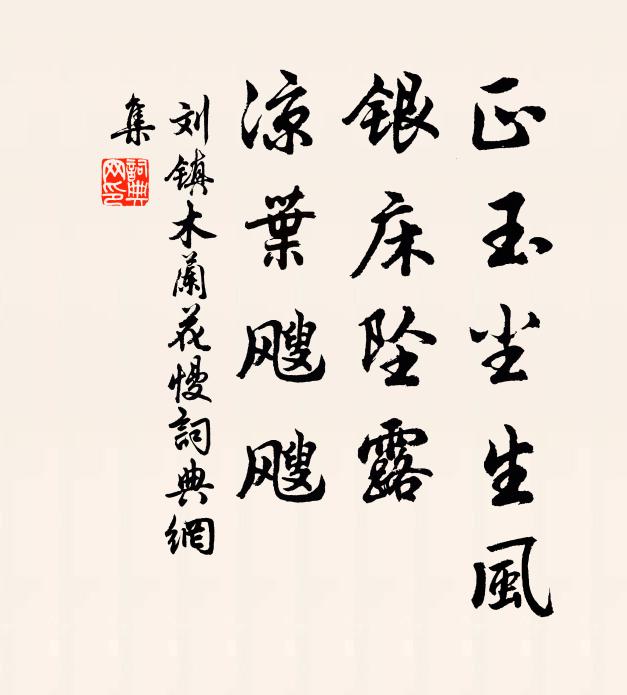 正玉尘生风
银床坠露
凉葉飕飕
刘镇木蘭花慢詞典網
集
詞典
网印